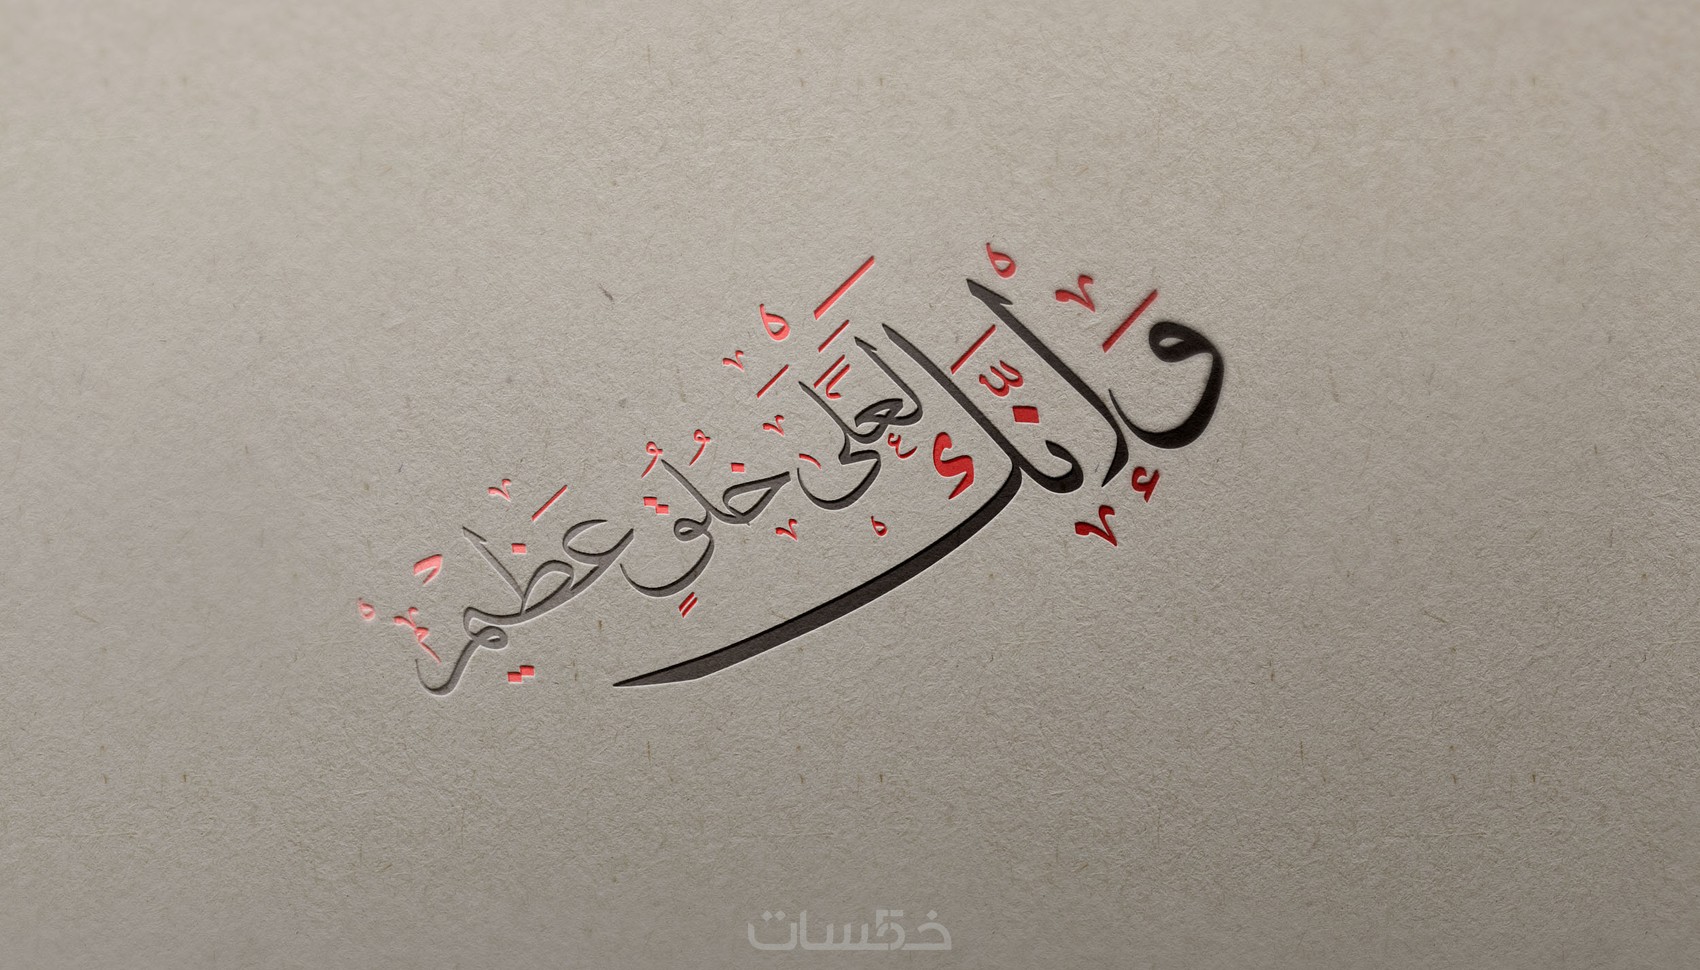 وَإِنَّكَ لَعَلَىٰ خُلُقٍ عَظِيمٍ
خمسات